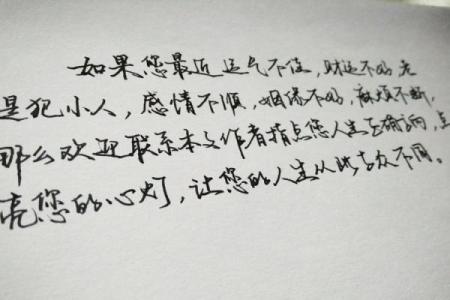 如果您最近运气不佳，财运不好老
是犯小人，感情不顺，姻缘不好，麻烦不断，
那么欢迎联系本文作者指点您人生正确方向，点
亮您的心灯，让您的人生从此与众不同。